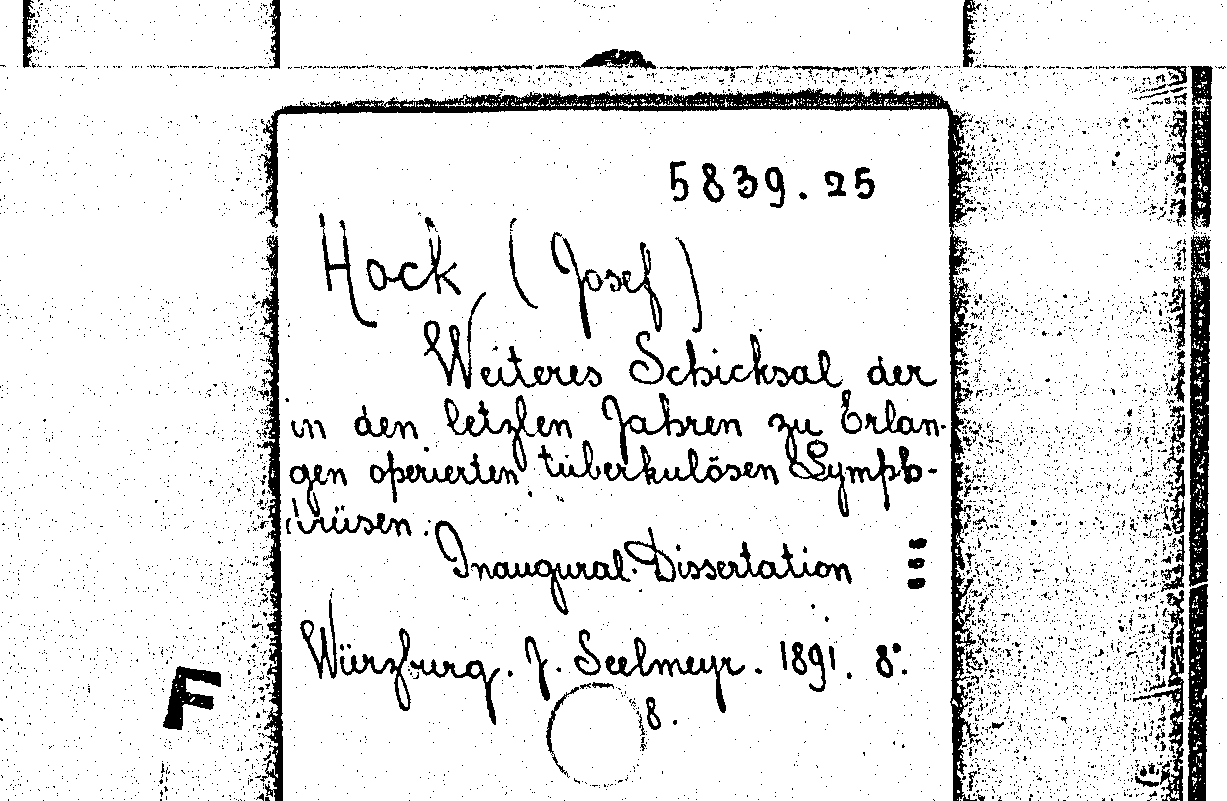 5839.25
Hock (Josef)
Weiteres Schicksal der
in den letzten Jahren zu Erlan-
gen operierten tuberkulösen Lymph-
drüsen.
Inaugural-Dissertation
Würzburg. J. Seelmeyr. 1891. 8°.
8.
F